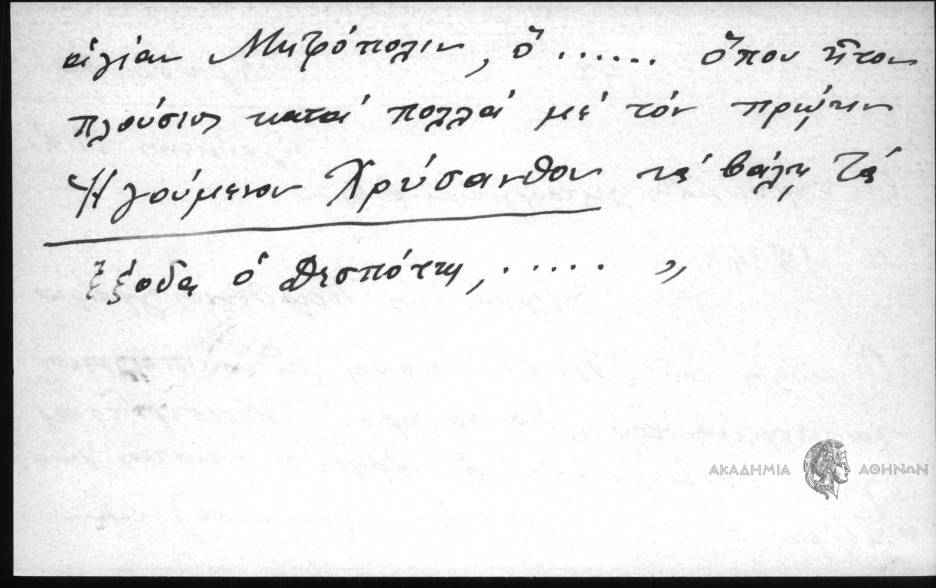 ἁγίαν Μητρόπολιν, ὁ ...... ὅπου ἦτον
πλούσιος κατὰ πολλὰ μὲ τὸν πρώην
Ἡγούμενον Χρύσανθον νὰ βάλῃ τὰ
ἔξοδα ὁ Δεσπότης, ..... ”
ΑΚΑΔΗΜΙΑ ΑΘΗΝΩΝ